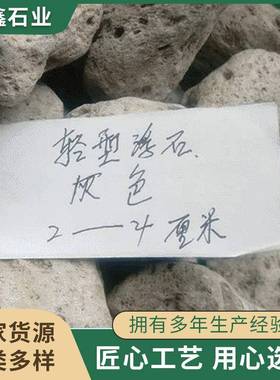 鑫石业
轻型浮石.
灰色
2—4厘米
家货源
类多样
拥有多年生产经验
匠心工艺 用心选